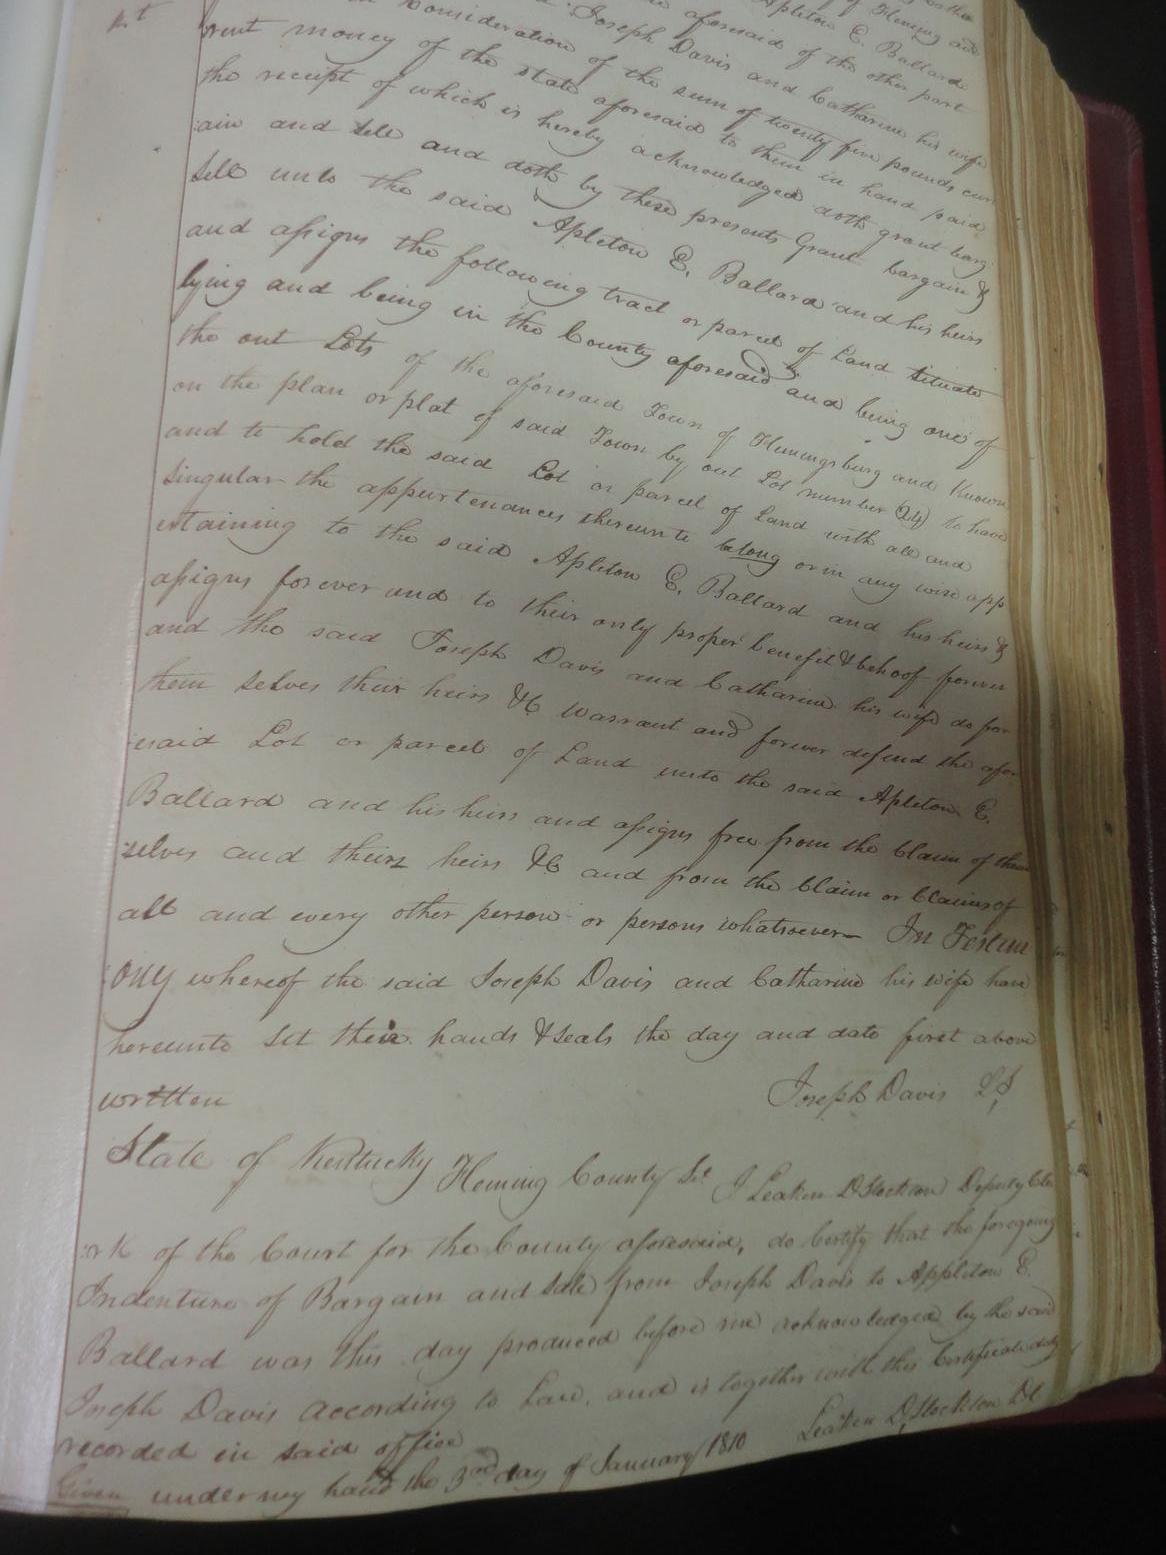 of Fleming and
Apleton E. Ballard
aforesaid of the other part
Consideration Joseph Davis and Catharine his wife
of the sum of twenty five pounds cur
rent money of the state aforesaid to them in hand paid
the receipt of which is hereby acknowledged doth grant barg
:ain and Sell and doth by these presents Grant bargain &
Sell unto the said Apleton E. Ballard and his heirs
and assigns the following tract or parcel of Land Situate
lying and being in the County aforesaid and being one of
the out Lots of the aforesaid Town of Flemingsburg and Known
on the plan or plat of said Town by out Lot number (24) to have
and to hold the said Lot or parcel of Land with all and
Singular the appurtenances thereunto belong or in any wise app
ertaining to the said Apleton E. Ballard and his heirs &
assigns forever and to their only proper benefit & behoof forever
and the said Joseph Davis and Catharine his wife do for
them selves their heirs &C warrant and forever defend the afor
:esaid Lot or parcel of Land unto the said Apleton E.
Ballard and his heirs and assigns free from the Claim of them
:selves and theirs heirs &C and from the Claim or Claims of
all and every other person or persons whatsoever In Testim
:ony whereof the said Joseph Davis and Catharine his wife have
hereunto Set their hands & seals the day and date first above
written Joseph Davis LS
State of Kentucky Fleming County Sct I Leaken D Stockton Deputy Cle
:rk of the Court for the County aforesaid, do Certify that the foregoing
Indenture of Bargain and Sale from Joseph Davis to Appleton E.
Ballard was this day produced before me acknowledged by the said
Joseph Davis according to Law, and is together with this Certificate duly
recorded in said office
Given under my hand the 3rd day of January 1810 Leaken D. Stockton DC